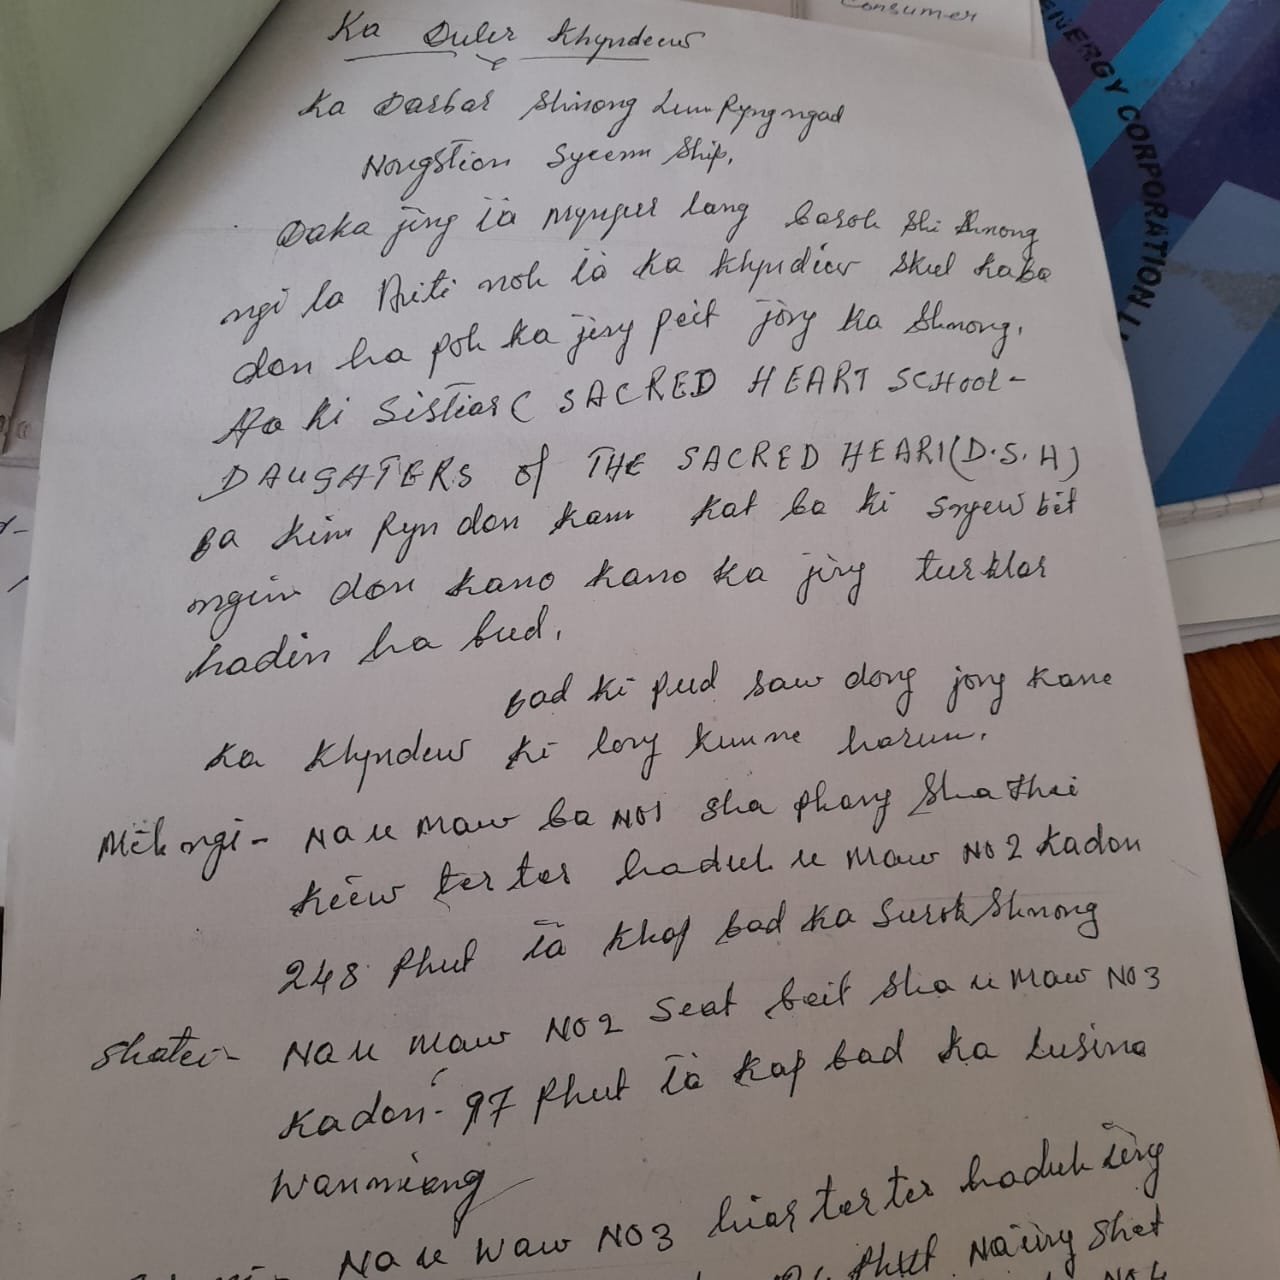 Consumer
ENERGY CORPORATION L
Ka Duler Khyndeew
Ka Darbar Shnong Lum Pyngngad
NongStion Syeem Ship,
Daka jing ïa mynjur lang baroh shi Shnong
ngi la Aiti noh ïa ka khyndiew skul kaba
don ha poh ka jing peit jong ka Shnong,
Ha ki Sistiar ( SACRED HEART SCHOOL-
DAUGHTERS of THE SACRED HEART (D.S.H)
ba kin Pyn don kam kat ba ki sngew bit
ngin don kano kano ka jing turklar
hadin ha bud,
bad ki pud saw dong jong kane
ka Khyndew ki long kumne harum.
Mih ngi - Na u maw ba NO1 sha phang Sha thei
kiew ter ter haduh u maw NO 2 Kadon
248 Phut ïa khap bad ka Surok Shnong
Shatei - Na u maw NO2 Seat beit sha u maw NO 3
Kadon - 97 Phut ïa kap bad ka Lusina
Wanniang
Na u Waw NO3 hiar ter ter haduh ïing
Phut Naïing Shet